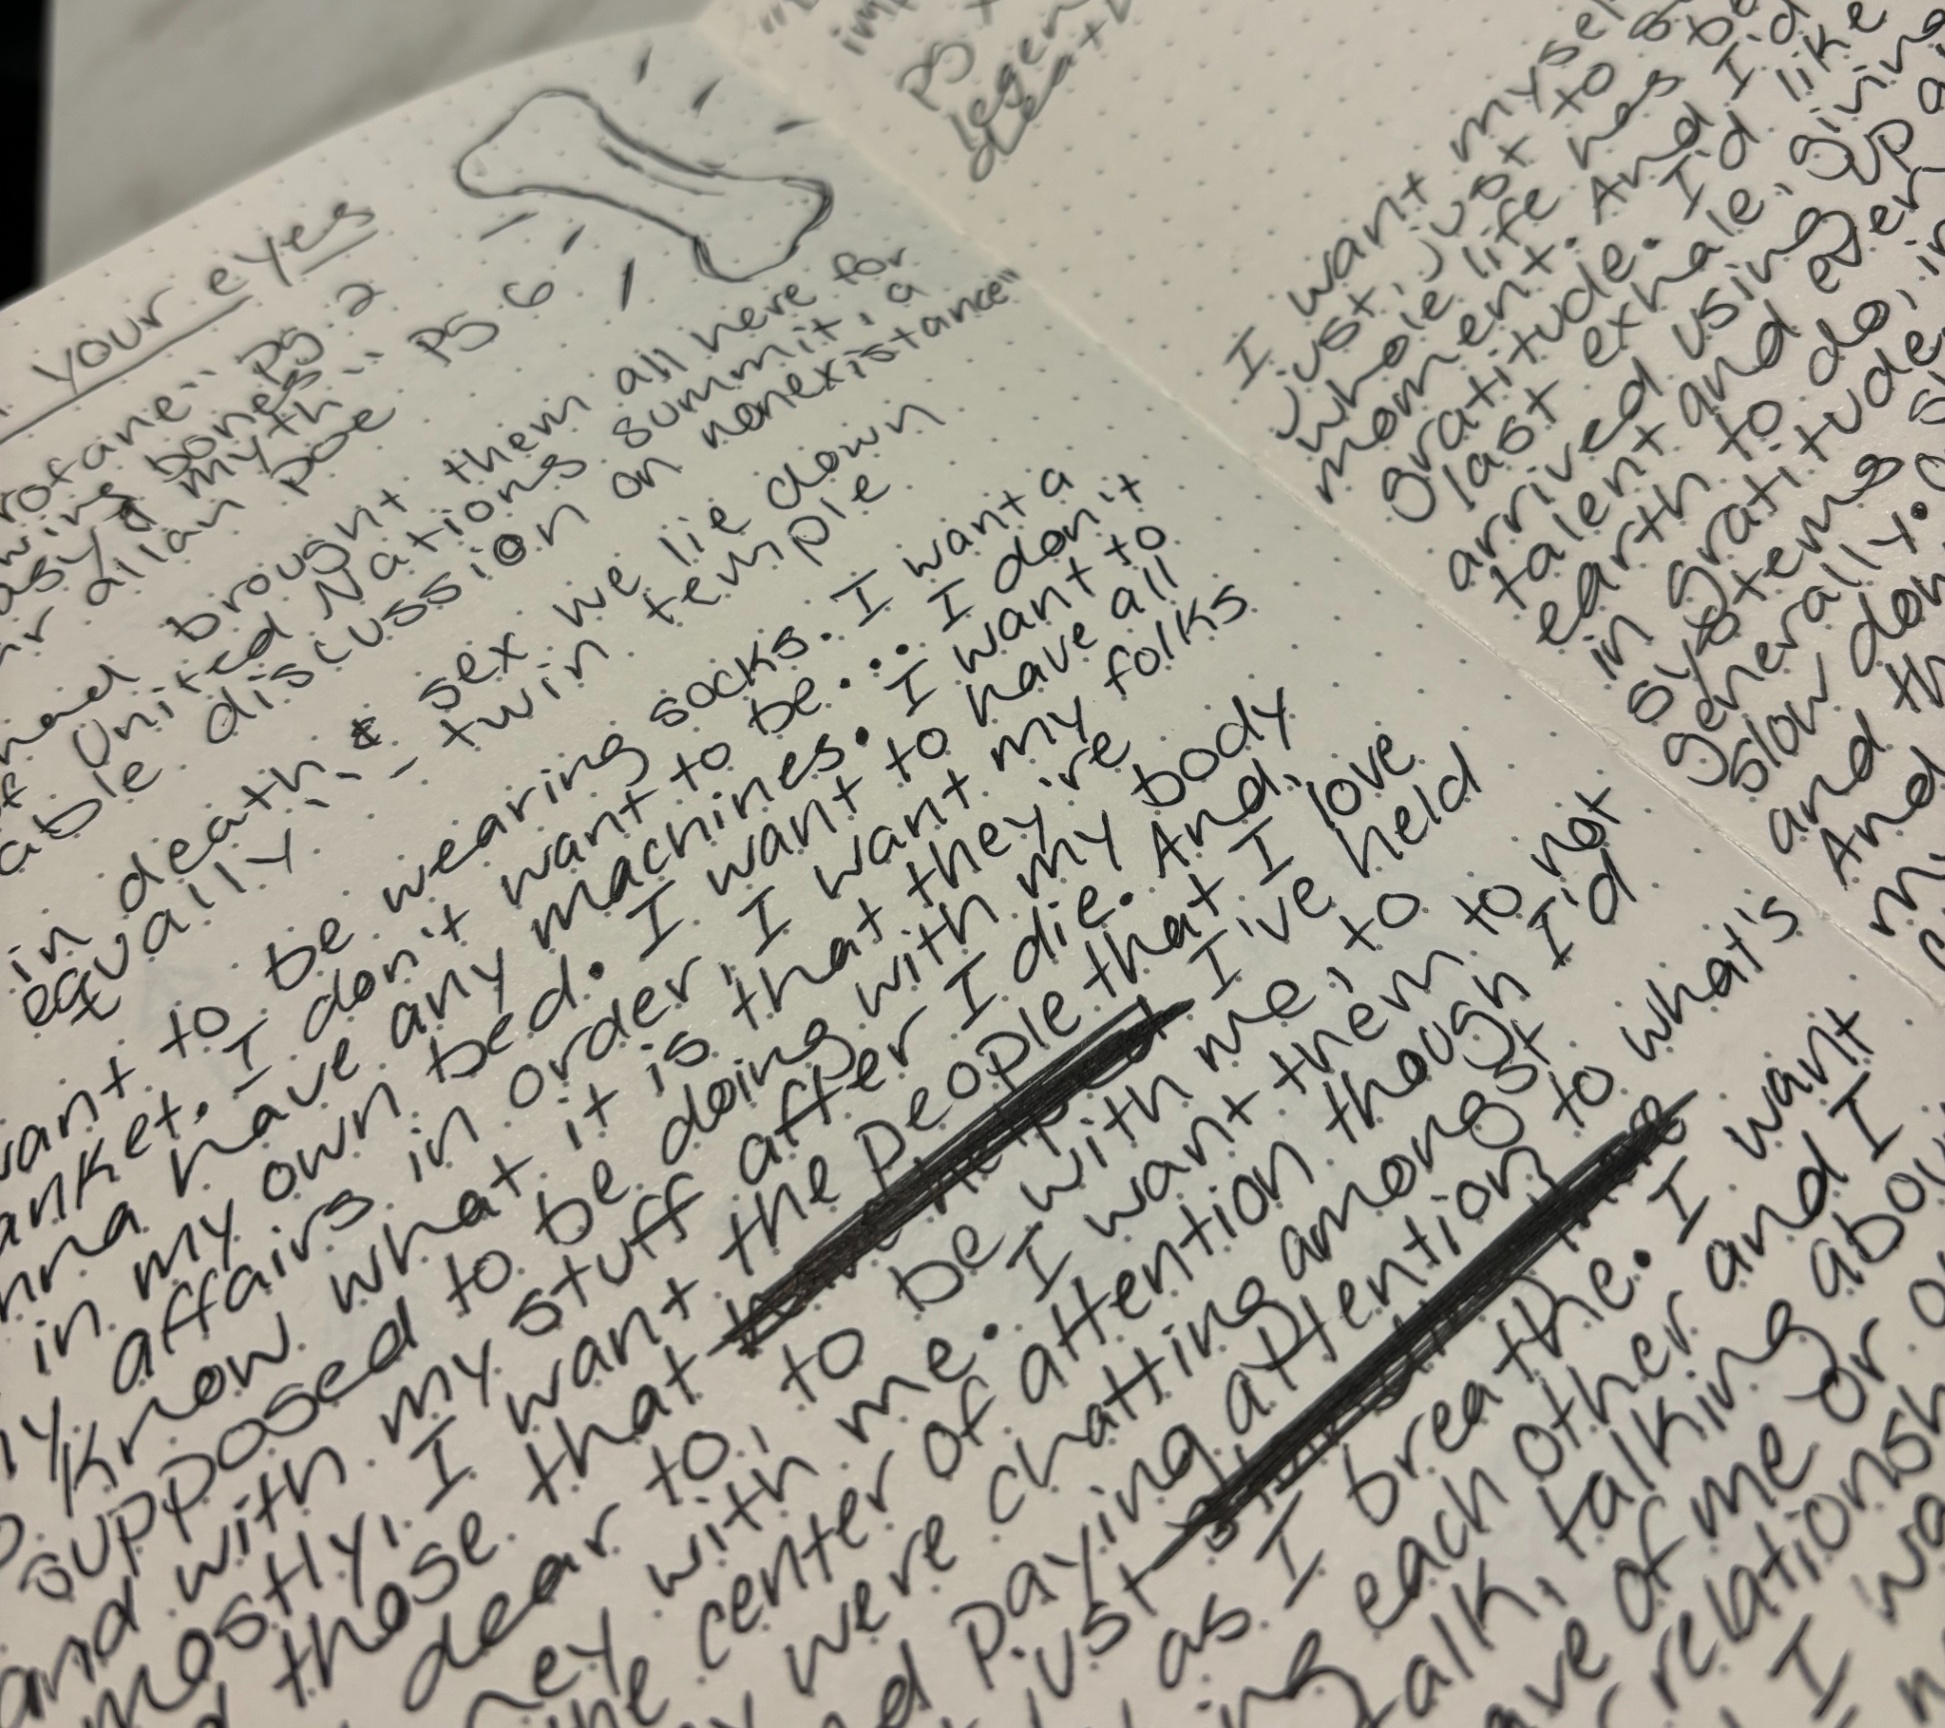 your eyes
rofane" pg. 2
wing bones"
asy & myth"
ar allan poe pg 6
had brought them all here for
of United Nations summit, a
able discussion on nonexistance"
in death & sex we lie down
equally" - twin temple
want to be wearing socks. I want a
anket. I don't want to be... I don't
nna have any machines. I want to
in my own bed. I want to have all
y affairs in order, I want my folks
o know what it is that they're
supposed to be doing with my body
and with my stuff after I die. And,
mostly, I want the people that I love
d those that I've held
dear to, to be with me, to
ney with me. I want them to not
he center of attention though I'd
y were chatting amongst
nd paying attention to what's
just
as I breathe. I want
ing each other and I
alk, talking abou
ave of me or o
relationsh
I wa
imp
pg
legen
death
I want mysel
just, just to
whole life has be
moment. And I'd
gratitude. I'd like
last exhale, giving
arrived using up a
talent and ever
earth to do, in
in gratitude
systems
generally.
slow down
and th
And
my